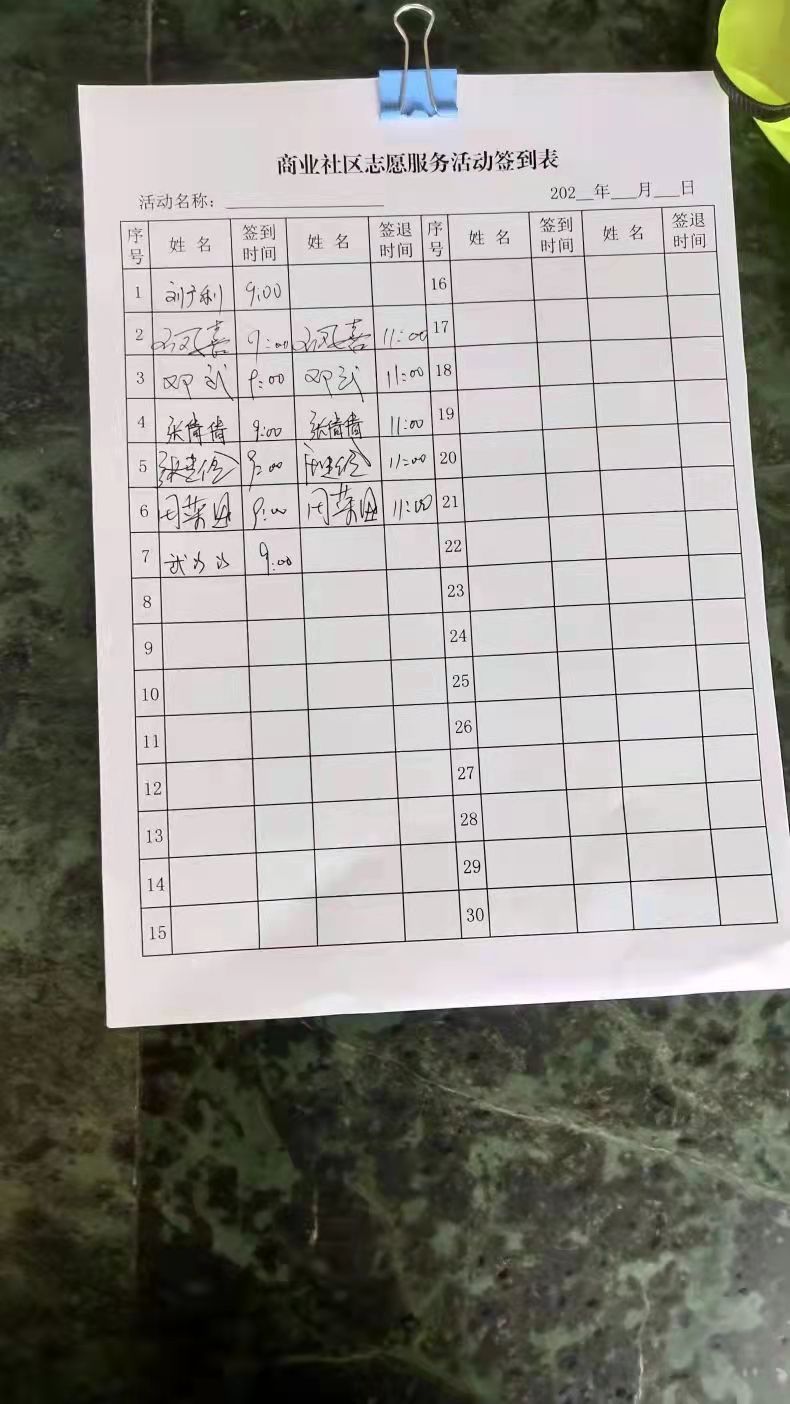 商业社区志愿服务活动签到表
活动名称： 202__年___月___日
序号 姓名 签到时间 姓名 签退时间 序号 姓名 签到时间 姓名 签退时间
1 刘广利 9:00 16
2 9:00 11:00 17
3 邓武 9:00 邓武 11:00 18
4 张倩倩 9:00 张倩倩 11:00 19
5 9:00 11:00 20
6 9:00 11:00 21
7 9:00 22
8 23
9 24
10 25
11 26
12 27
13 28
14 29
15 30